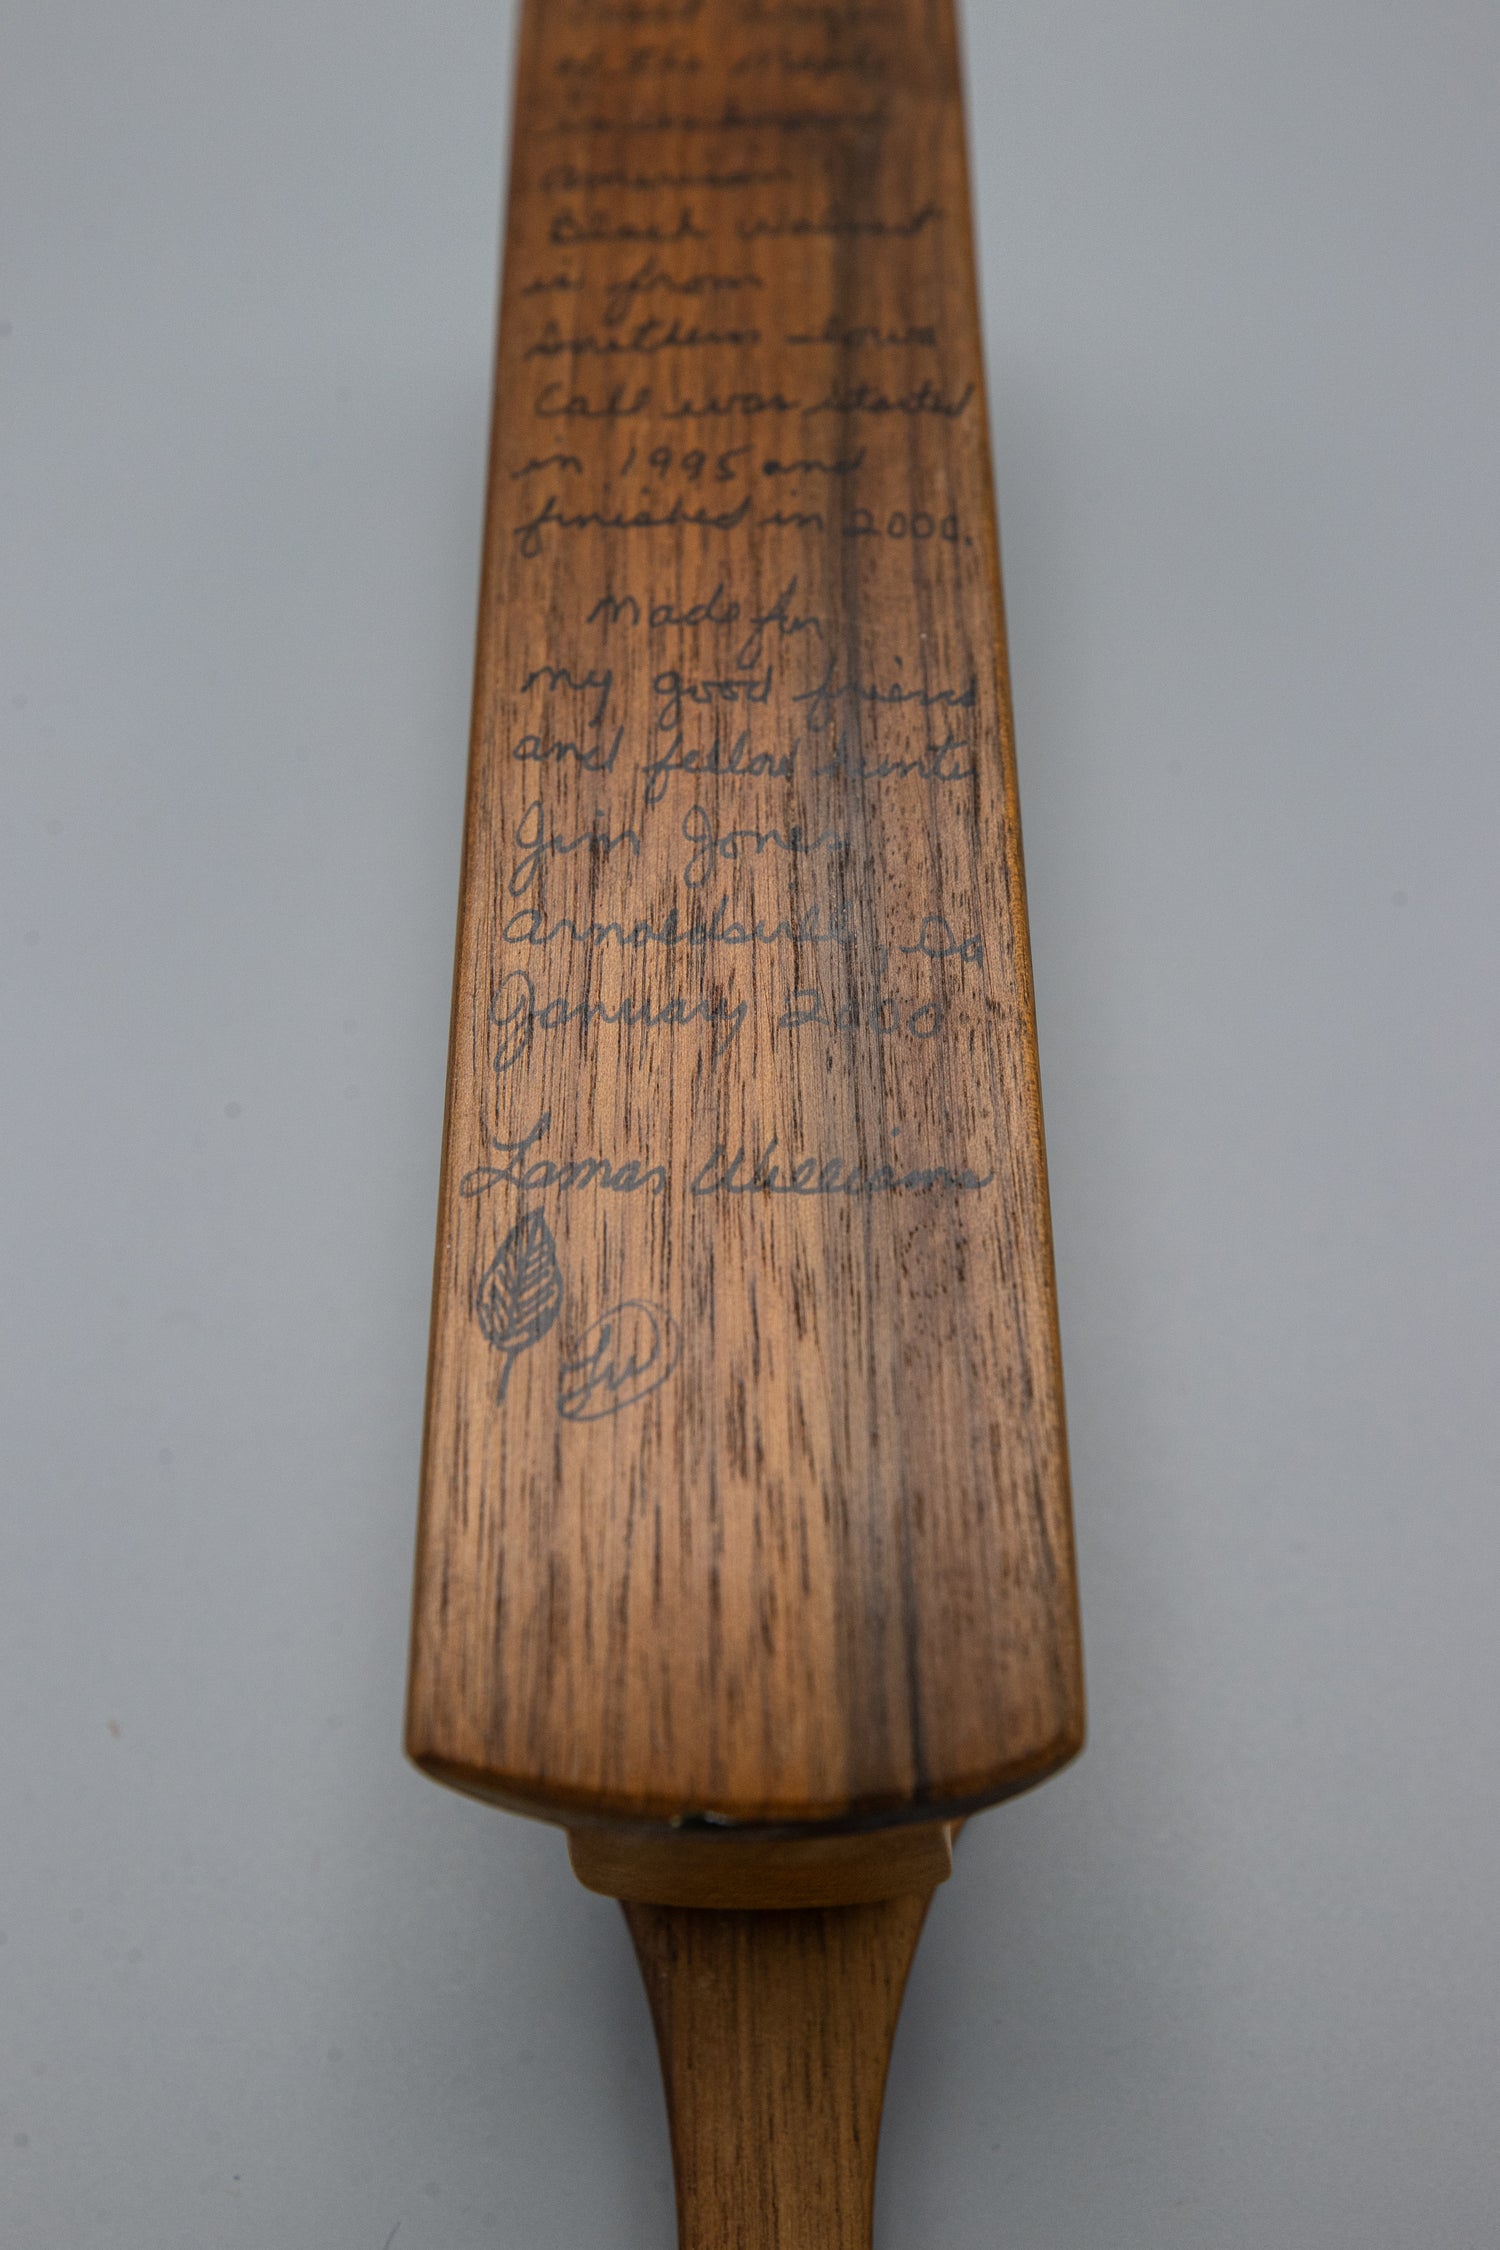 of the
American
Black Walnut
is from
Southern Iowa
Call was started
in 1995 and
finished in 2000.
Made for
my good friend
and fellow hunter
Jim Jones
Arnoldsville, Ga
January 2000
Lamar Williams
LW